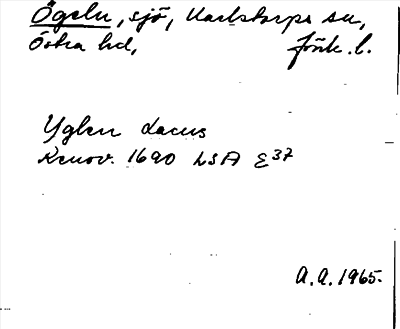 Ögeln, sjö, Karlstorps sn,
Östra hd, Jönk. l.
Yglen Lacus
Renov. 1690 LSA E37
A.A. 1965.